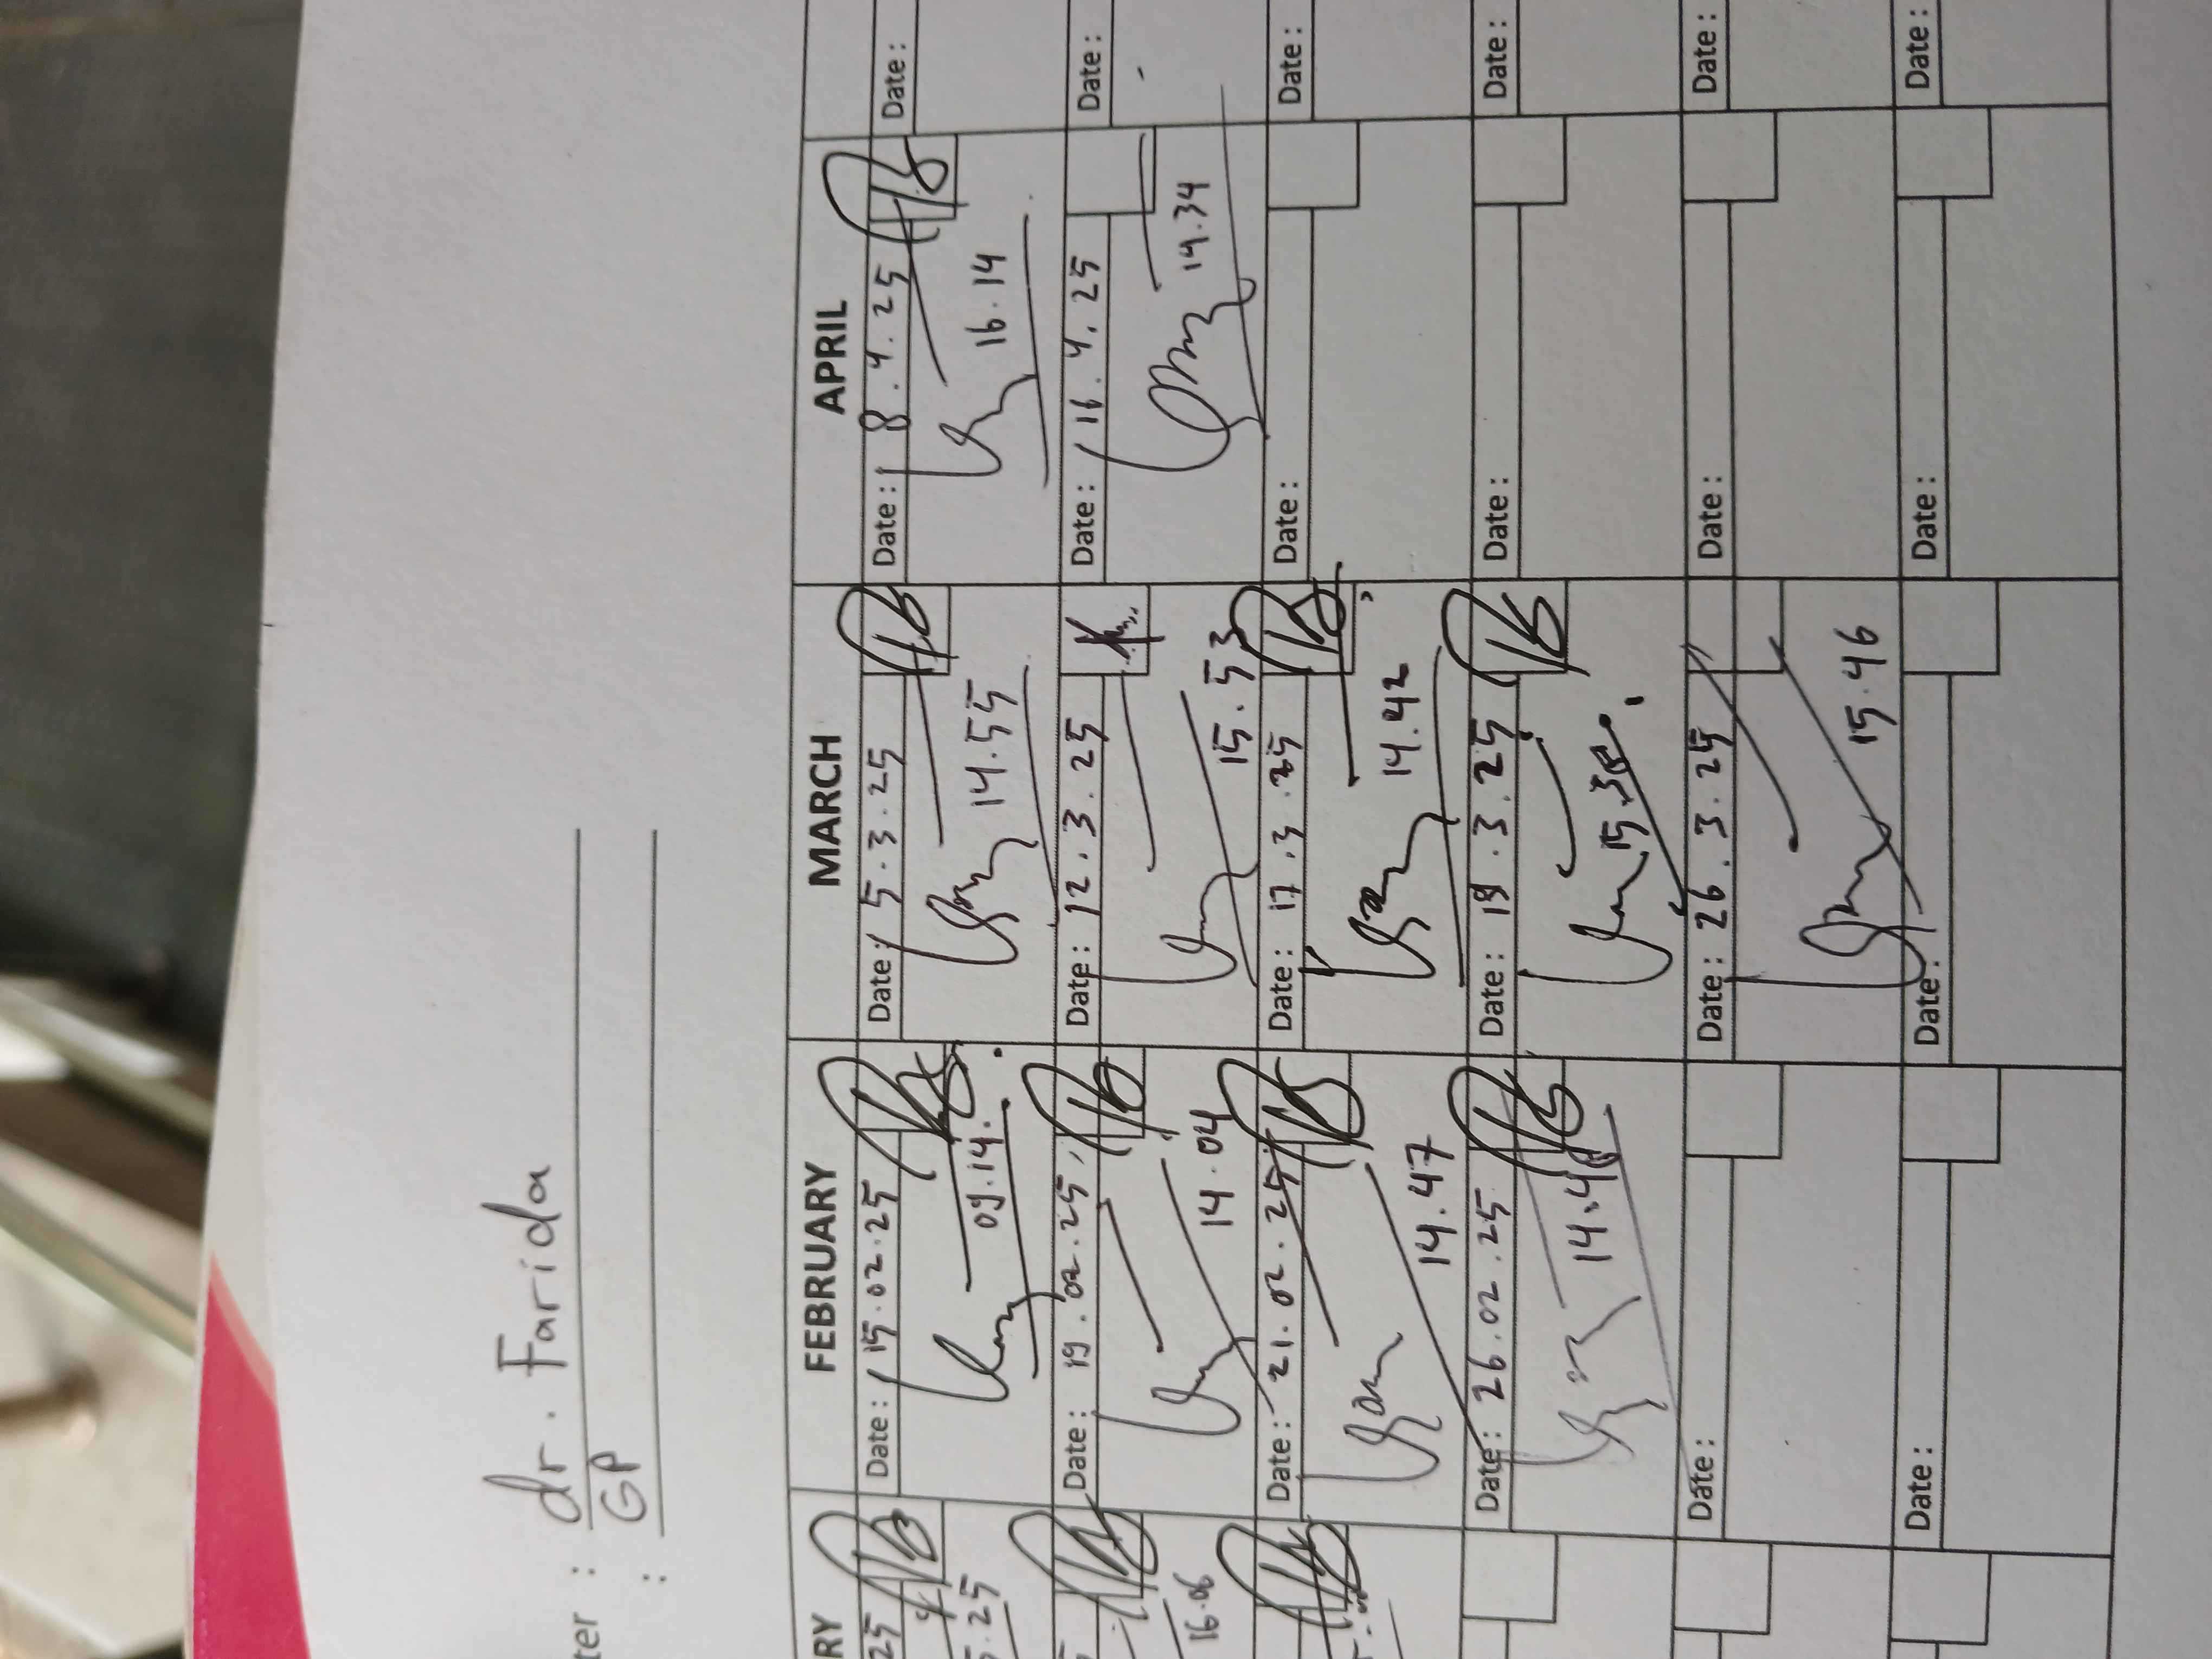 ter : dr. Farida
: GP
RY FEBRUARY MARCH APRIL
25 Date : 15.02.25 Date : 5.3.25 Date : 8.4.25 Date :
5.25 09.14. 14.55 16.14
Date : 19.02.25 Date : 12.3.25 Date : 16.4.25 Date :
16.06 14.04 15.53 14.34
Date : 21.02.25 Date : 17.3.25 Date : Date :
14.47 14.42
Date : 26.02.25 Date : 19.3.25 Date : Date :
Date : Date : 26.3.25 Date : Date :
15.46
Date : Date : Date : Date :